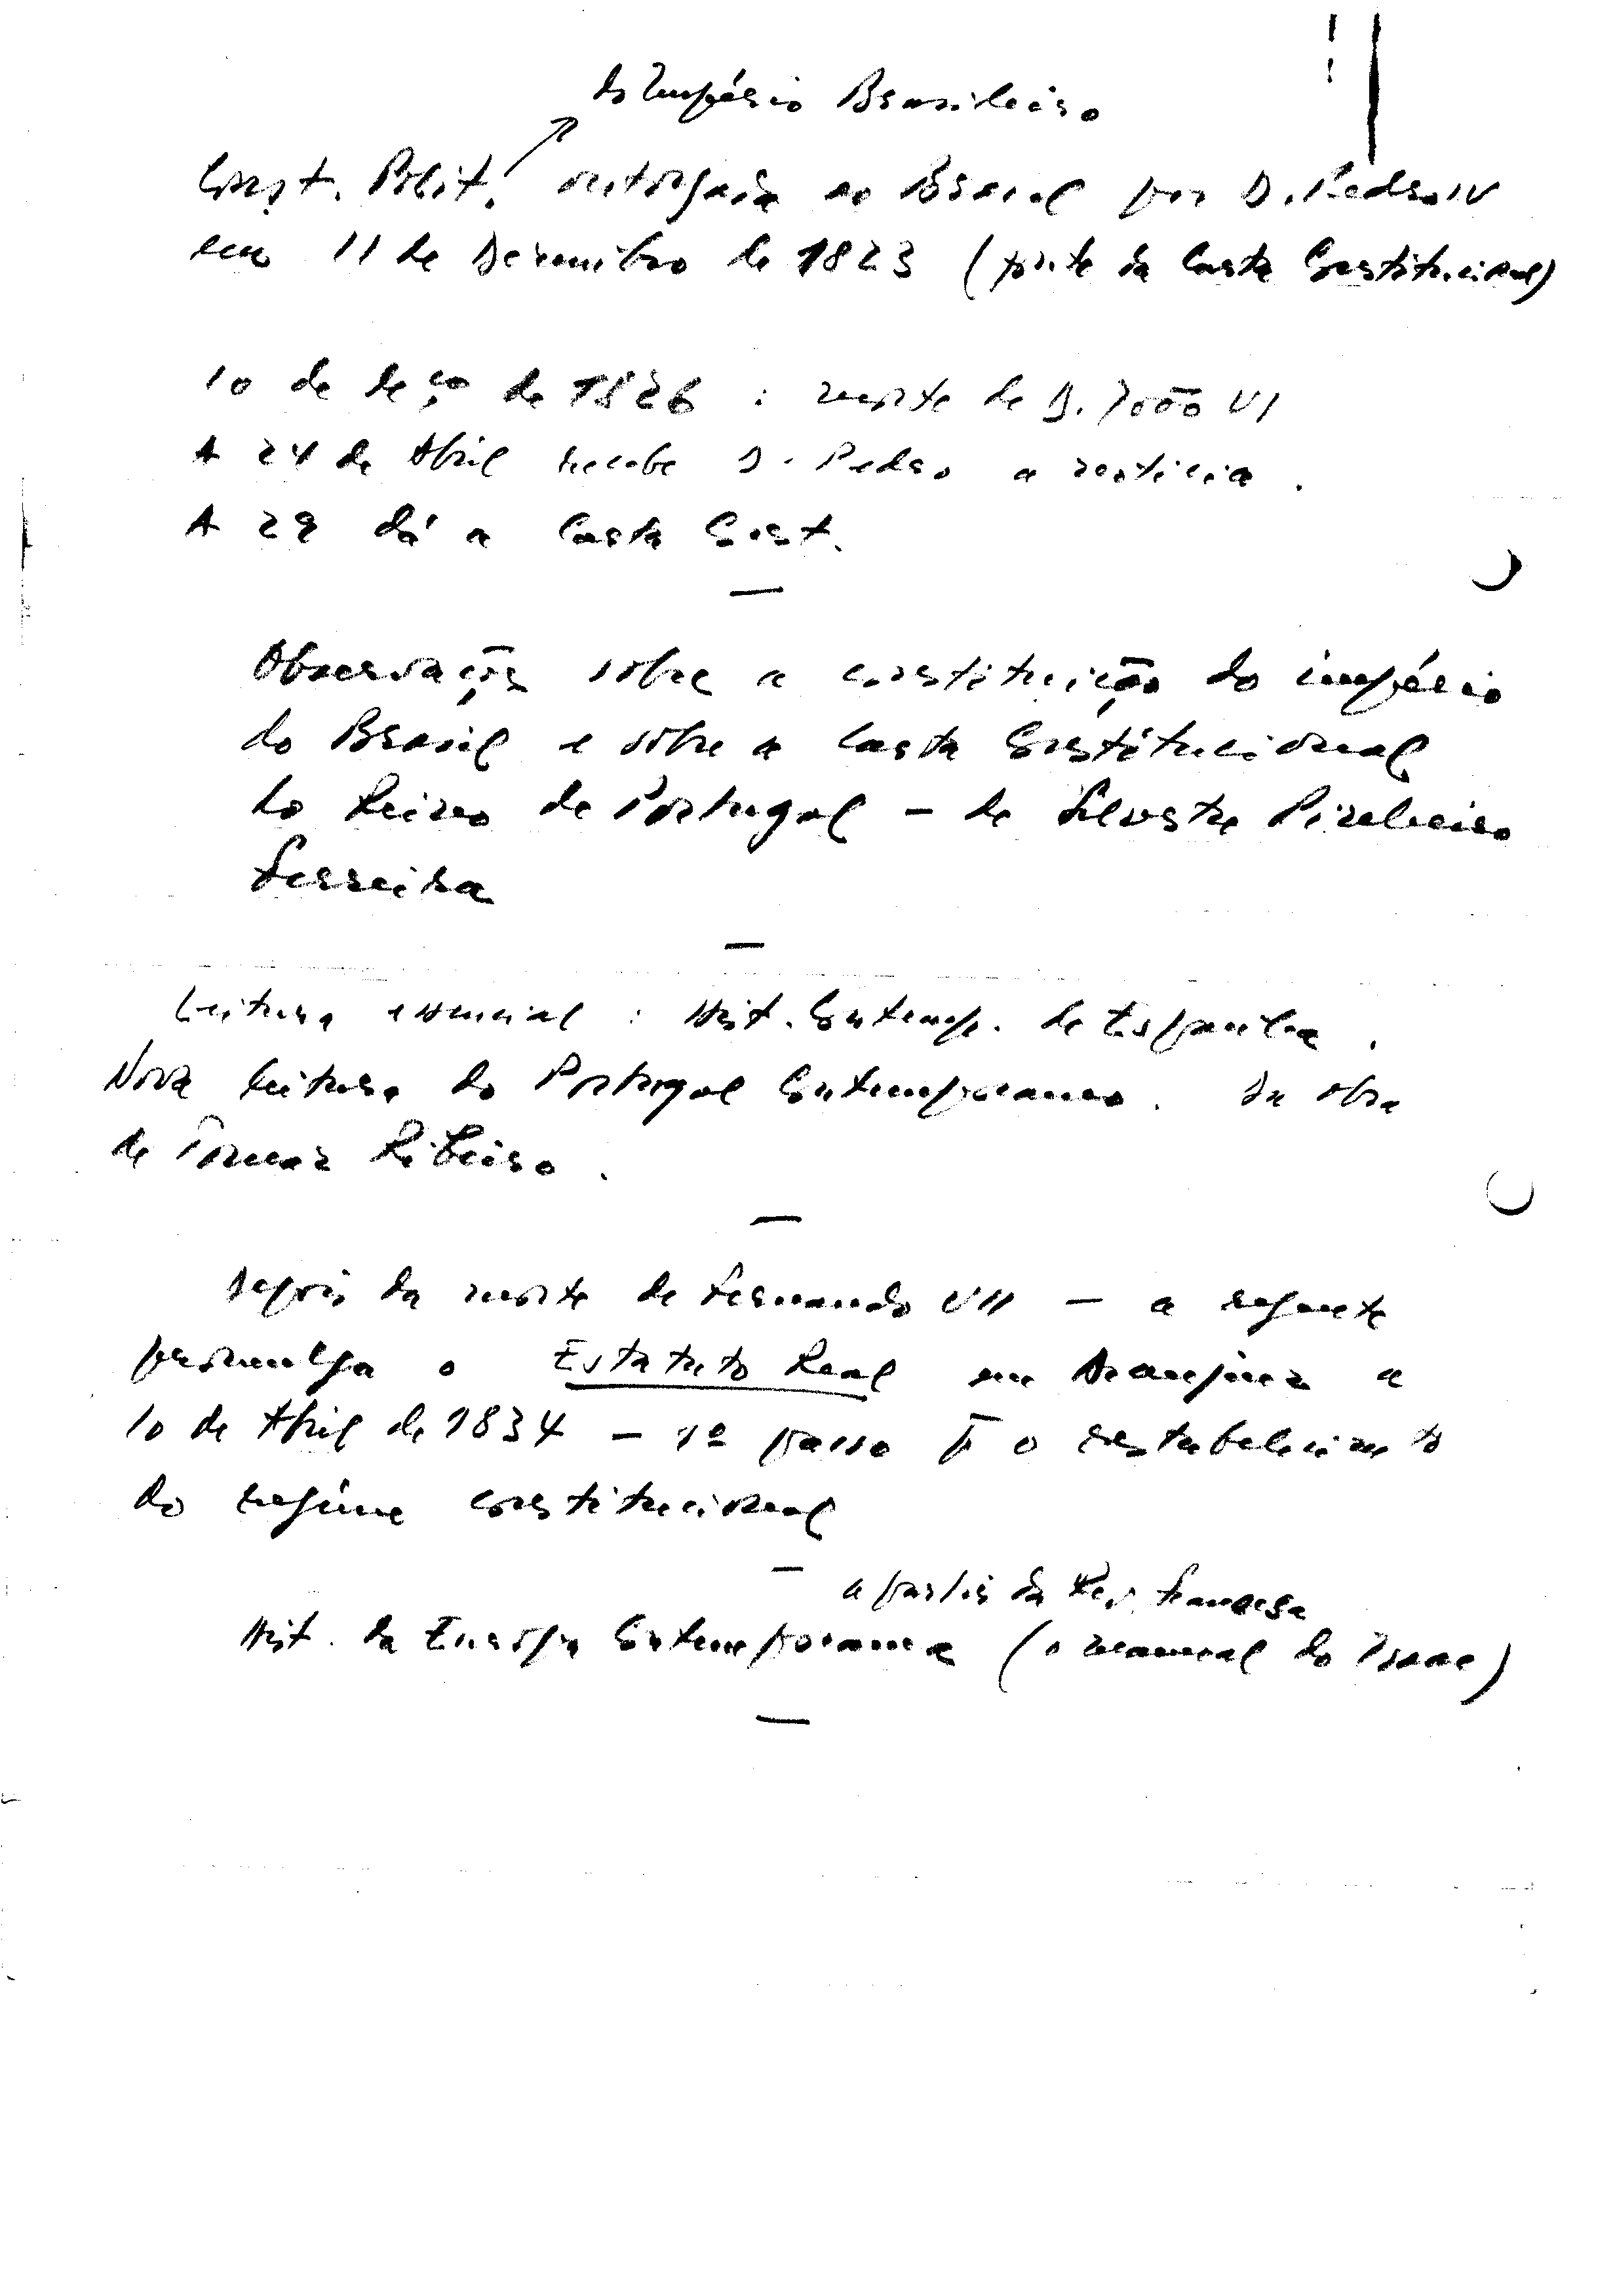 do Império Brasileiro
Const. Polit. outorgada ao Brasil por D. Pedro IV
em 11 de Dezembro de 1823 (fonte da Carta Constitucional)
10 de de 1826 : morte de D. João VI
A 24 de Abril recebe D. Pedro a notícia.
A 29 dá a Carta Const.
—
Observações sobre a constituição do império
do Brasil e sobre a Carta Constitucional
do Reino de Portugal – de Silvestre Pinheiro
Ferreira
—
Leitura essencial : Hist. Contemp. de Espanha.
Nova leitura do Portugal Contemporaneo. Da obra
de Tomaz Ribeiro.
—
Depois da morte de Fernando VII – a regente
promulga o Estatuto Real em Aranjuez a
10 de Abril de 1834 – 1º passo p̄ o restabelecimento
do regime constitucional
—
a partir da Rev. francesa
Hist. da Europa Contemporanea (o manual do Isaac)
—